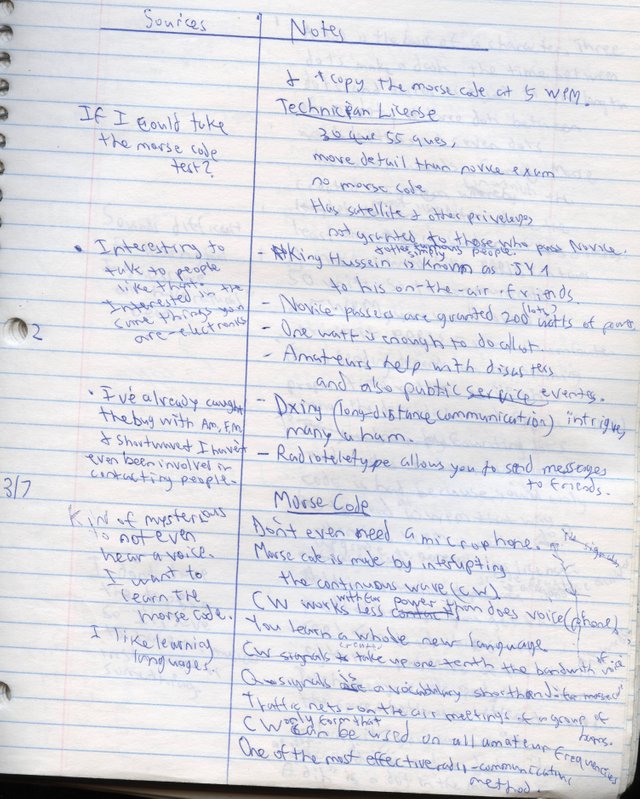 Sources
Notes
& copy the morse code at 5 WPM.
Technician License
If I could take
the morse code
test?
30 que 55 ques,
more detail than novice exam
no morse code
Has satellite & other priveleges
not granted to those who pass Novice.
• Interesting to
talk to people
like that.
Interested in the
same things you
are - electronics
simply
- King Hussein is known as JY1
to his on-the-air friends.
- Novice passers are granted 200 watts of power
(lots?)
- One watt is enough to do a lot.
- Amateurs help with disasters
and also public service events.
2
• I've already caught
the bug with Am, F.M.
& shortwave I haven't
even been involved in
contacting people.
- Dxing (long-distance communication) intrigues
many a ham.
- Radioteletype allows you to send messages
to friends.
3/7
Morse Code
Kin of mysterious
to not even
hear a voice.
I want to
learn the
morse code.
I like learning
languages.
Don't even need a microphone.
Morse code is made by interupting
the continuous wave (CW)
CW works with far less power than does voice (phone)
You learn a whole new language
CW signals take up one tenth the bandwith of voice
Q signals is a vocabulary shorthand for morse
Traffic nets - on the air meetings of a group of
hams.
CW only form that can be used on all amateur frequencies
One of the most effective radio-communications
method.